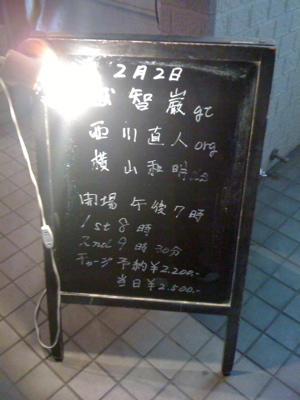 2月2日
智巌 gt
西川直人 org
横山和明
開場 午後7時
1st 8時
2nd 9時30分
チャージ 予約¥2.200.-
当日¥2.500.-